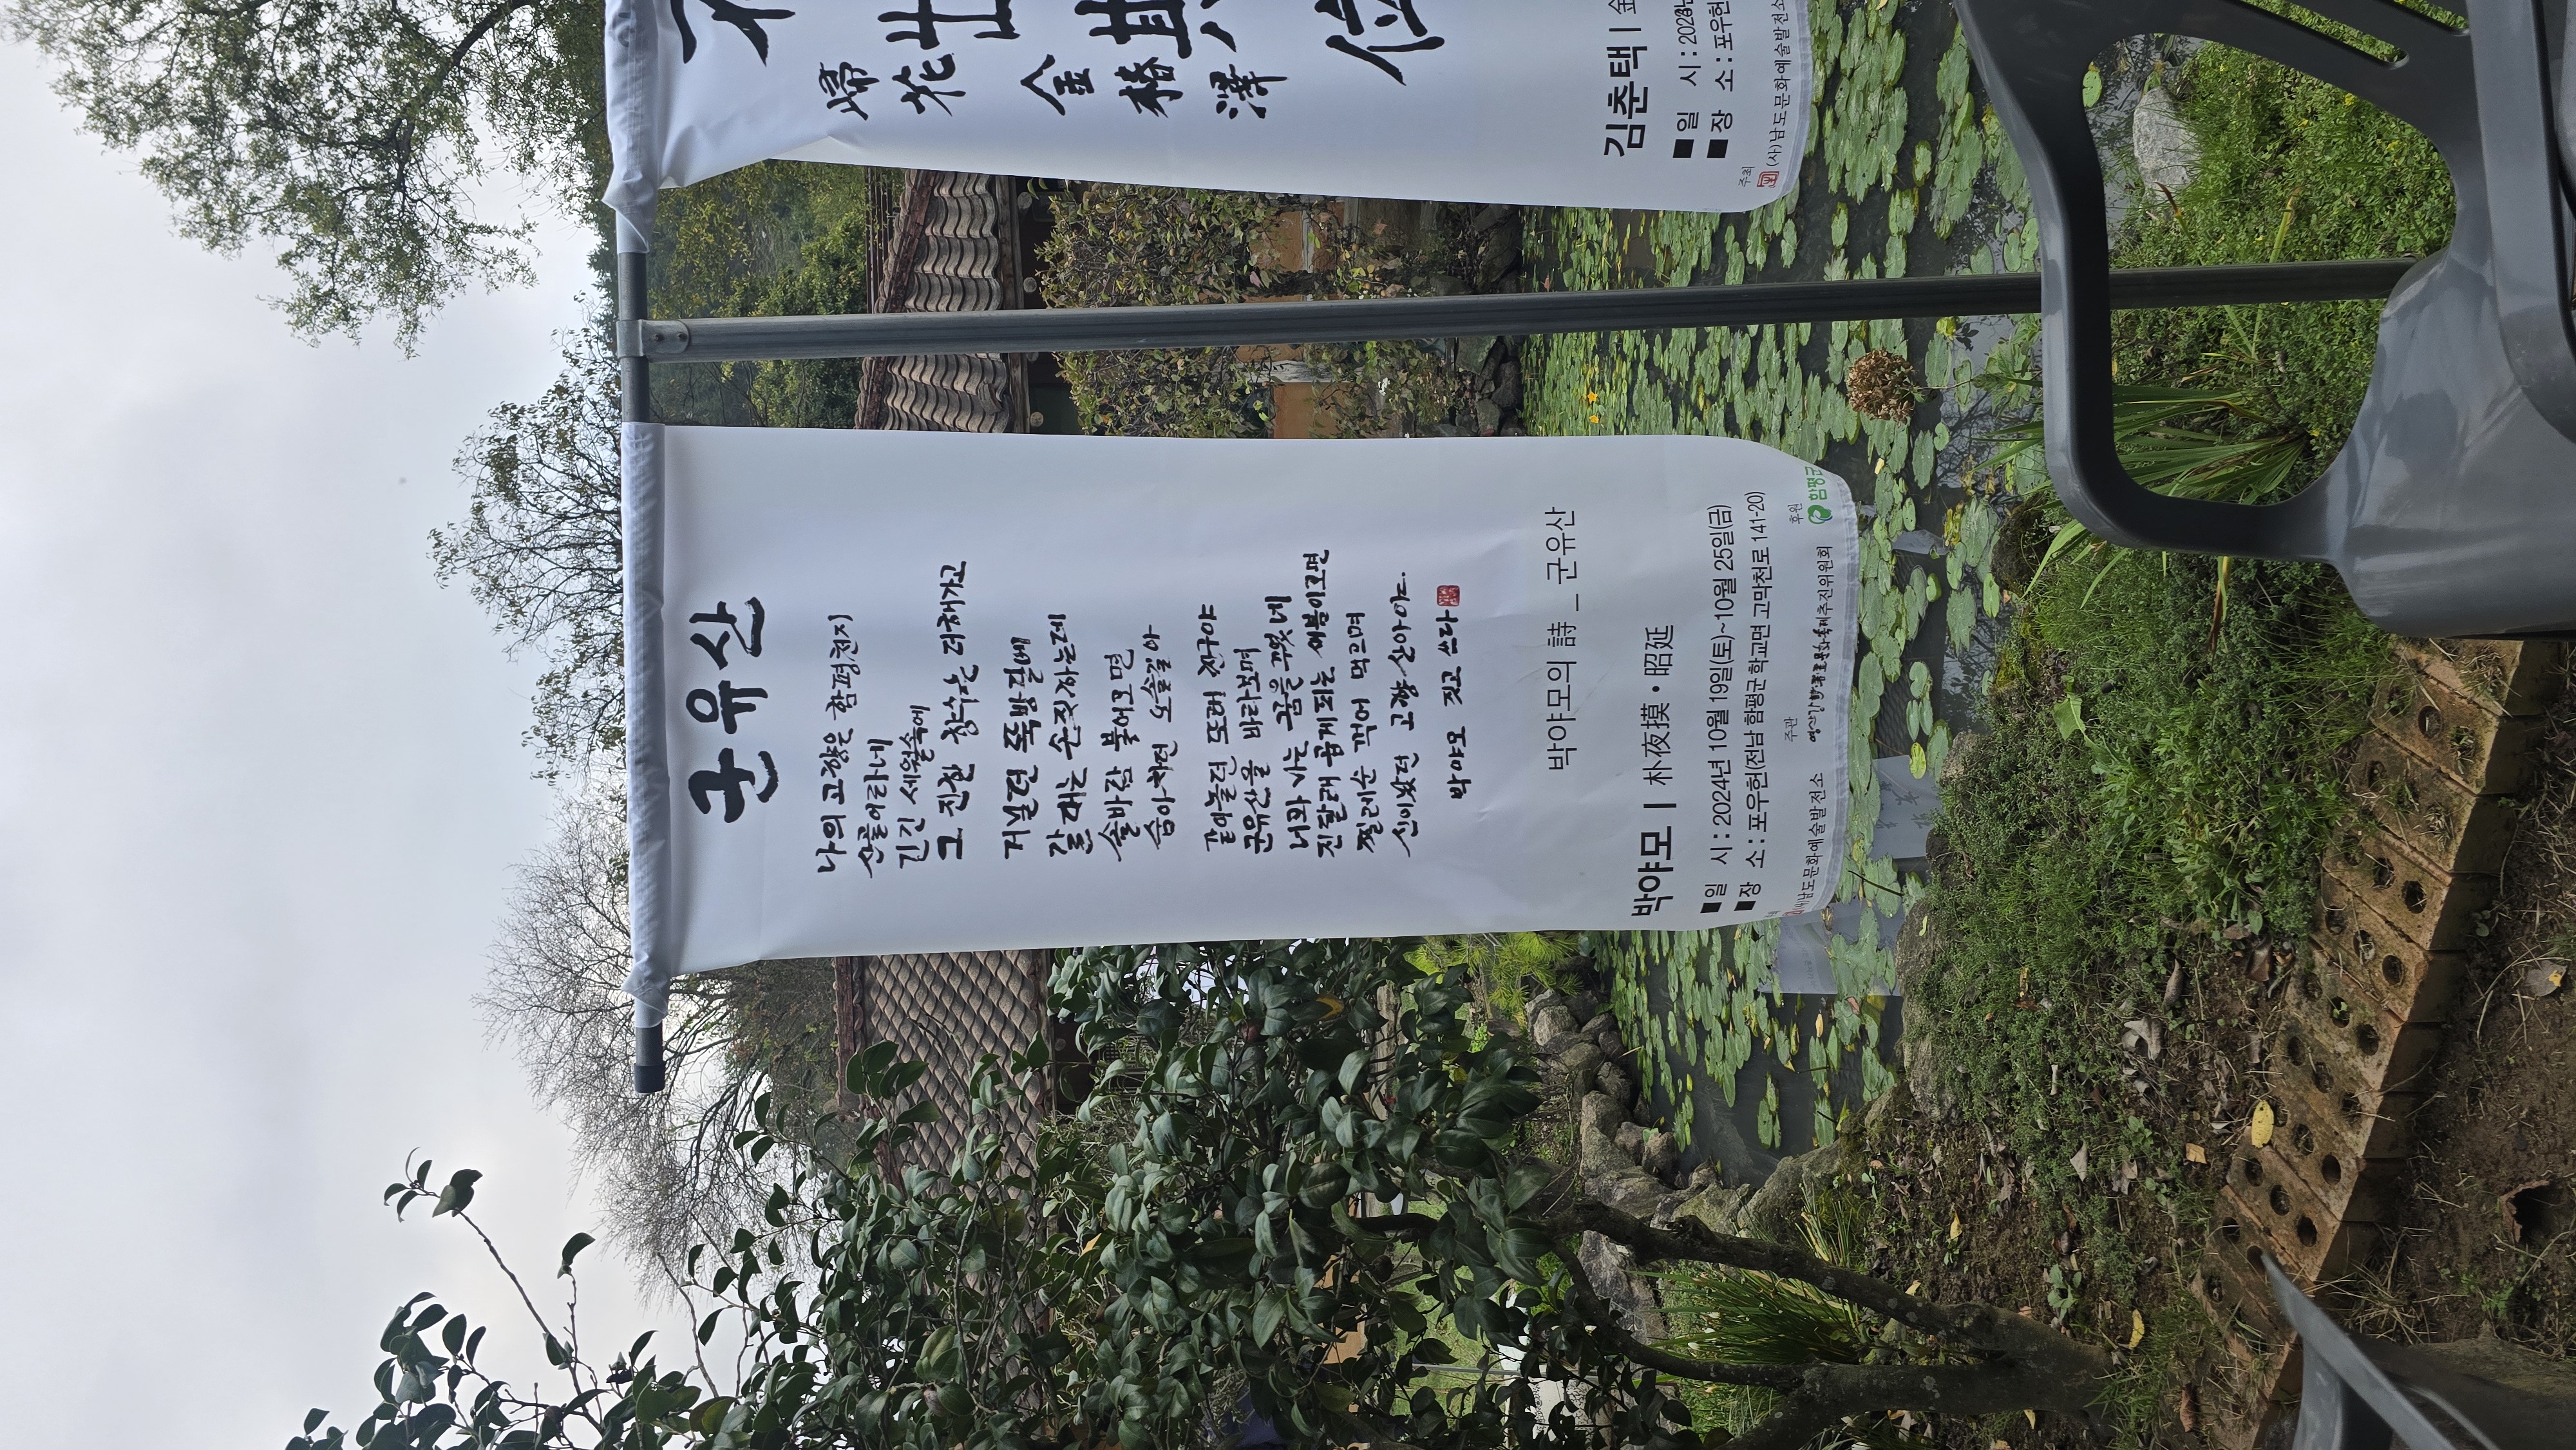 군유산
나의 고향은 함평천지
산골이라네
긴긴 세월속에
그 진한 향수는 더해가고
거닐던 뚝방길에
갈대는 손짓하는데
솔바람 불어오면
숨아차던 오솔길아
같이놀던 또래 친구야
군유산을 바라보며
너와 나는 꿈을 꾸었네
진달래 곱게 피는 새봄이오면
찔레순 꺽어 먹으며
신이났던 고향 산아 아.
박야모 짓고 쓰다
박야모의 詩 _ 군유산
박야모 | 朴夜摸 · 昭延
■일 시 : 2024년 10월 19일(토)~10월 25일(금)
■장 소 : 포우헌(전남 함평군 학교면 고막천로 141-20)
주관 후원
(사)남도문화예술발전소 추진위원회 함평군
歸
花
金
椿
澤
位
김춘택 | 金
■일 시 : 202
■장 소 : 포우헌
주최
(사)남도문화예술발전소